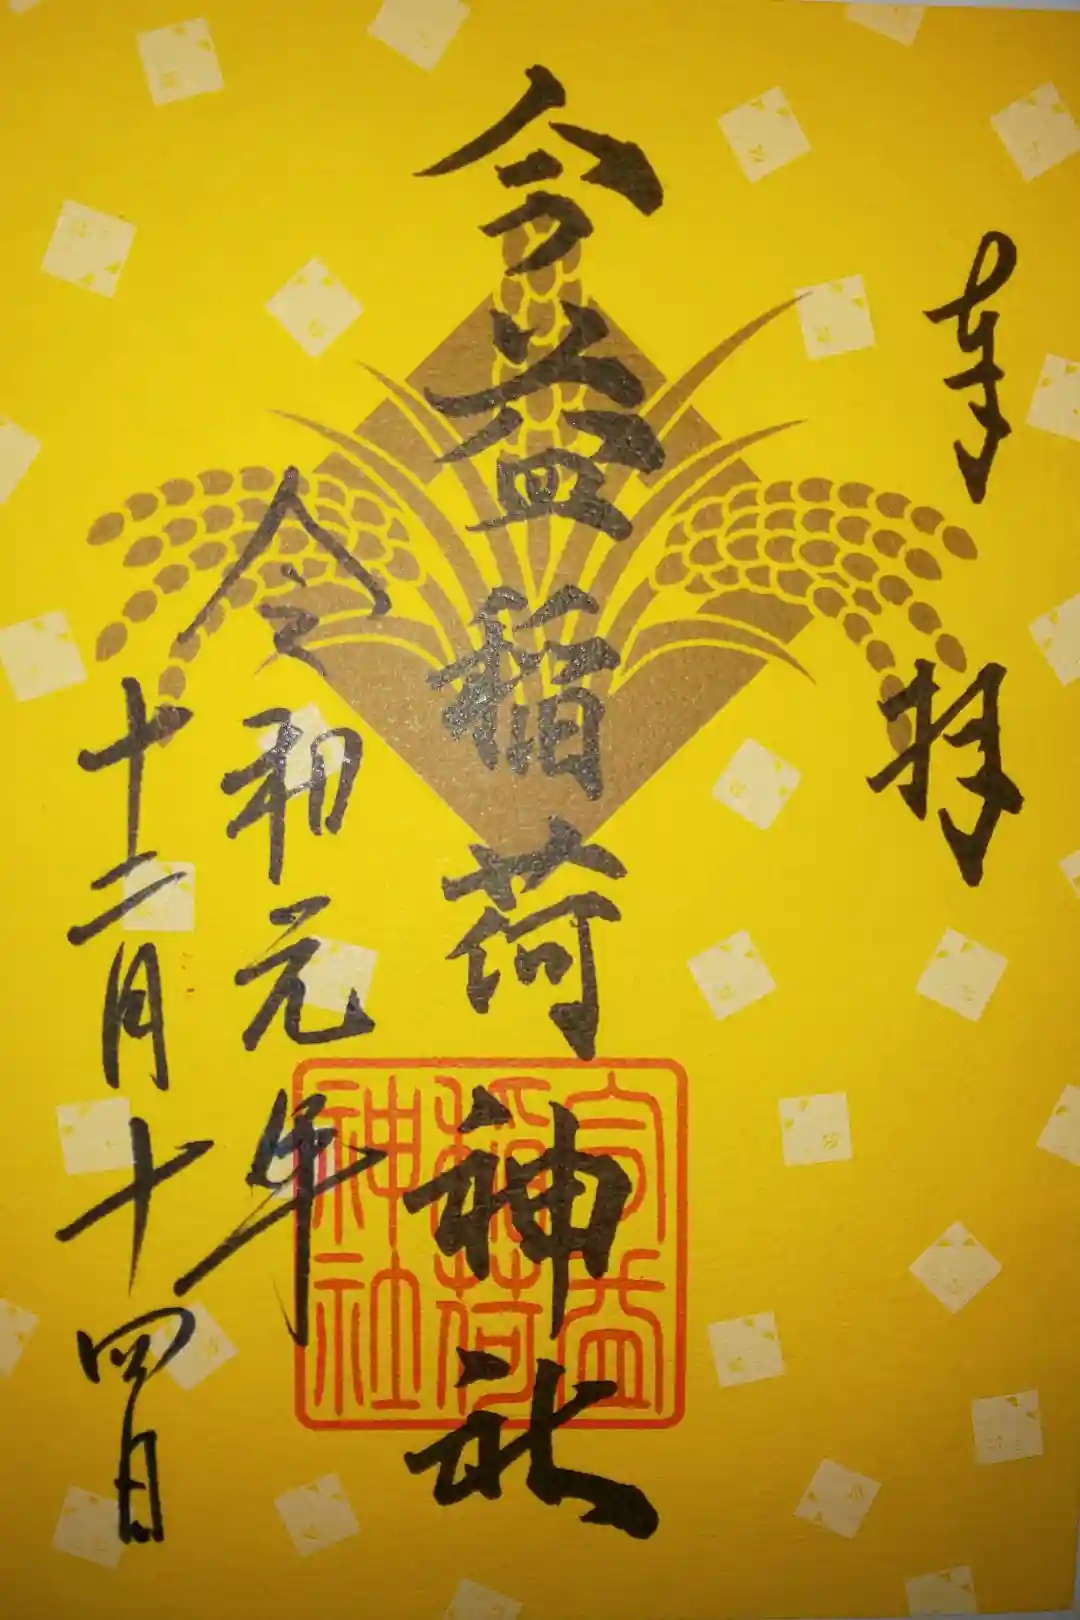 奉拝
今益稲荷神社
令和元年
十二月十四日
今益
稲荷
神社